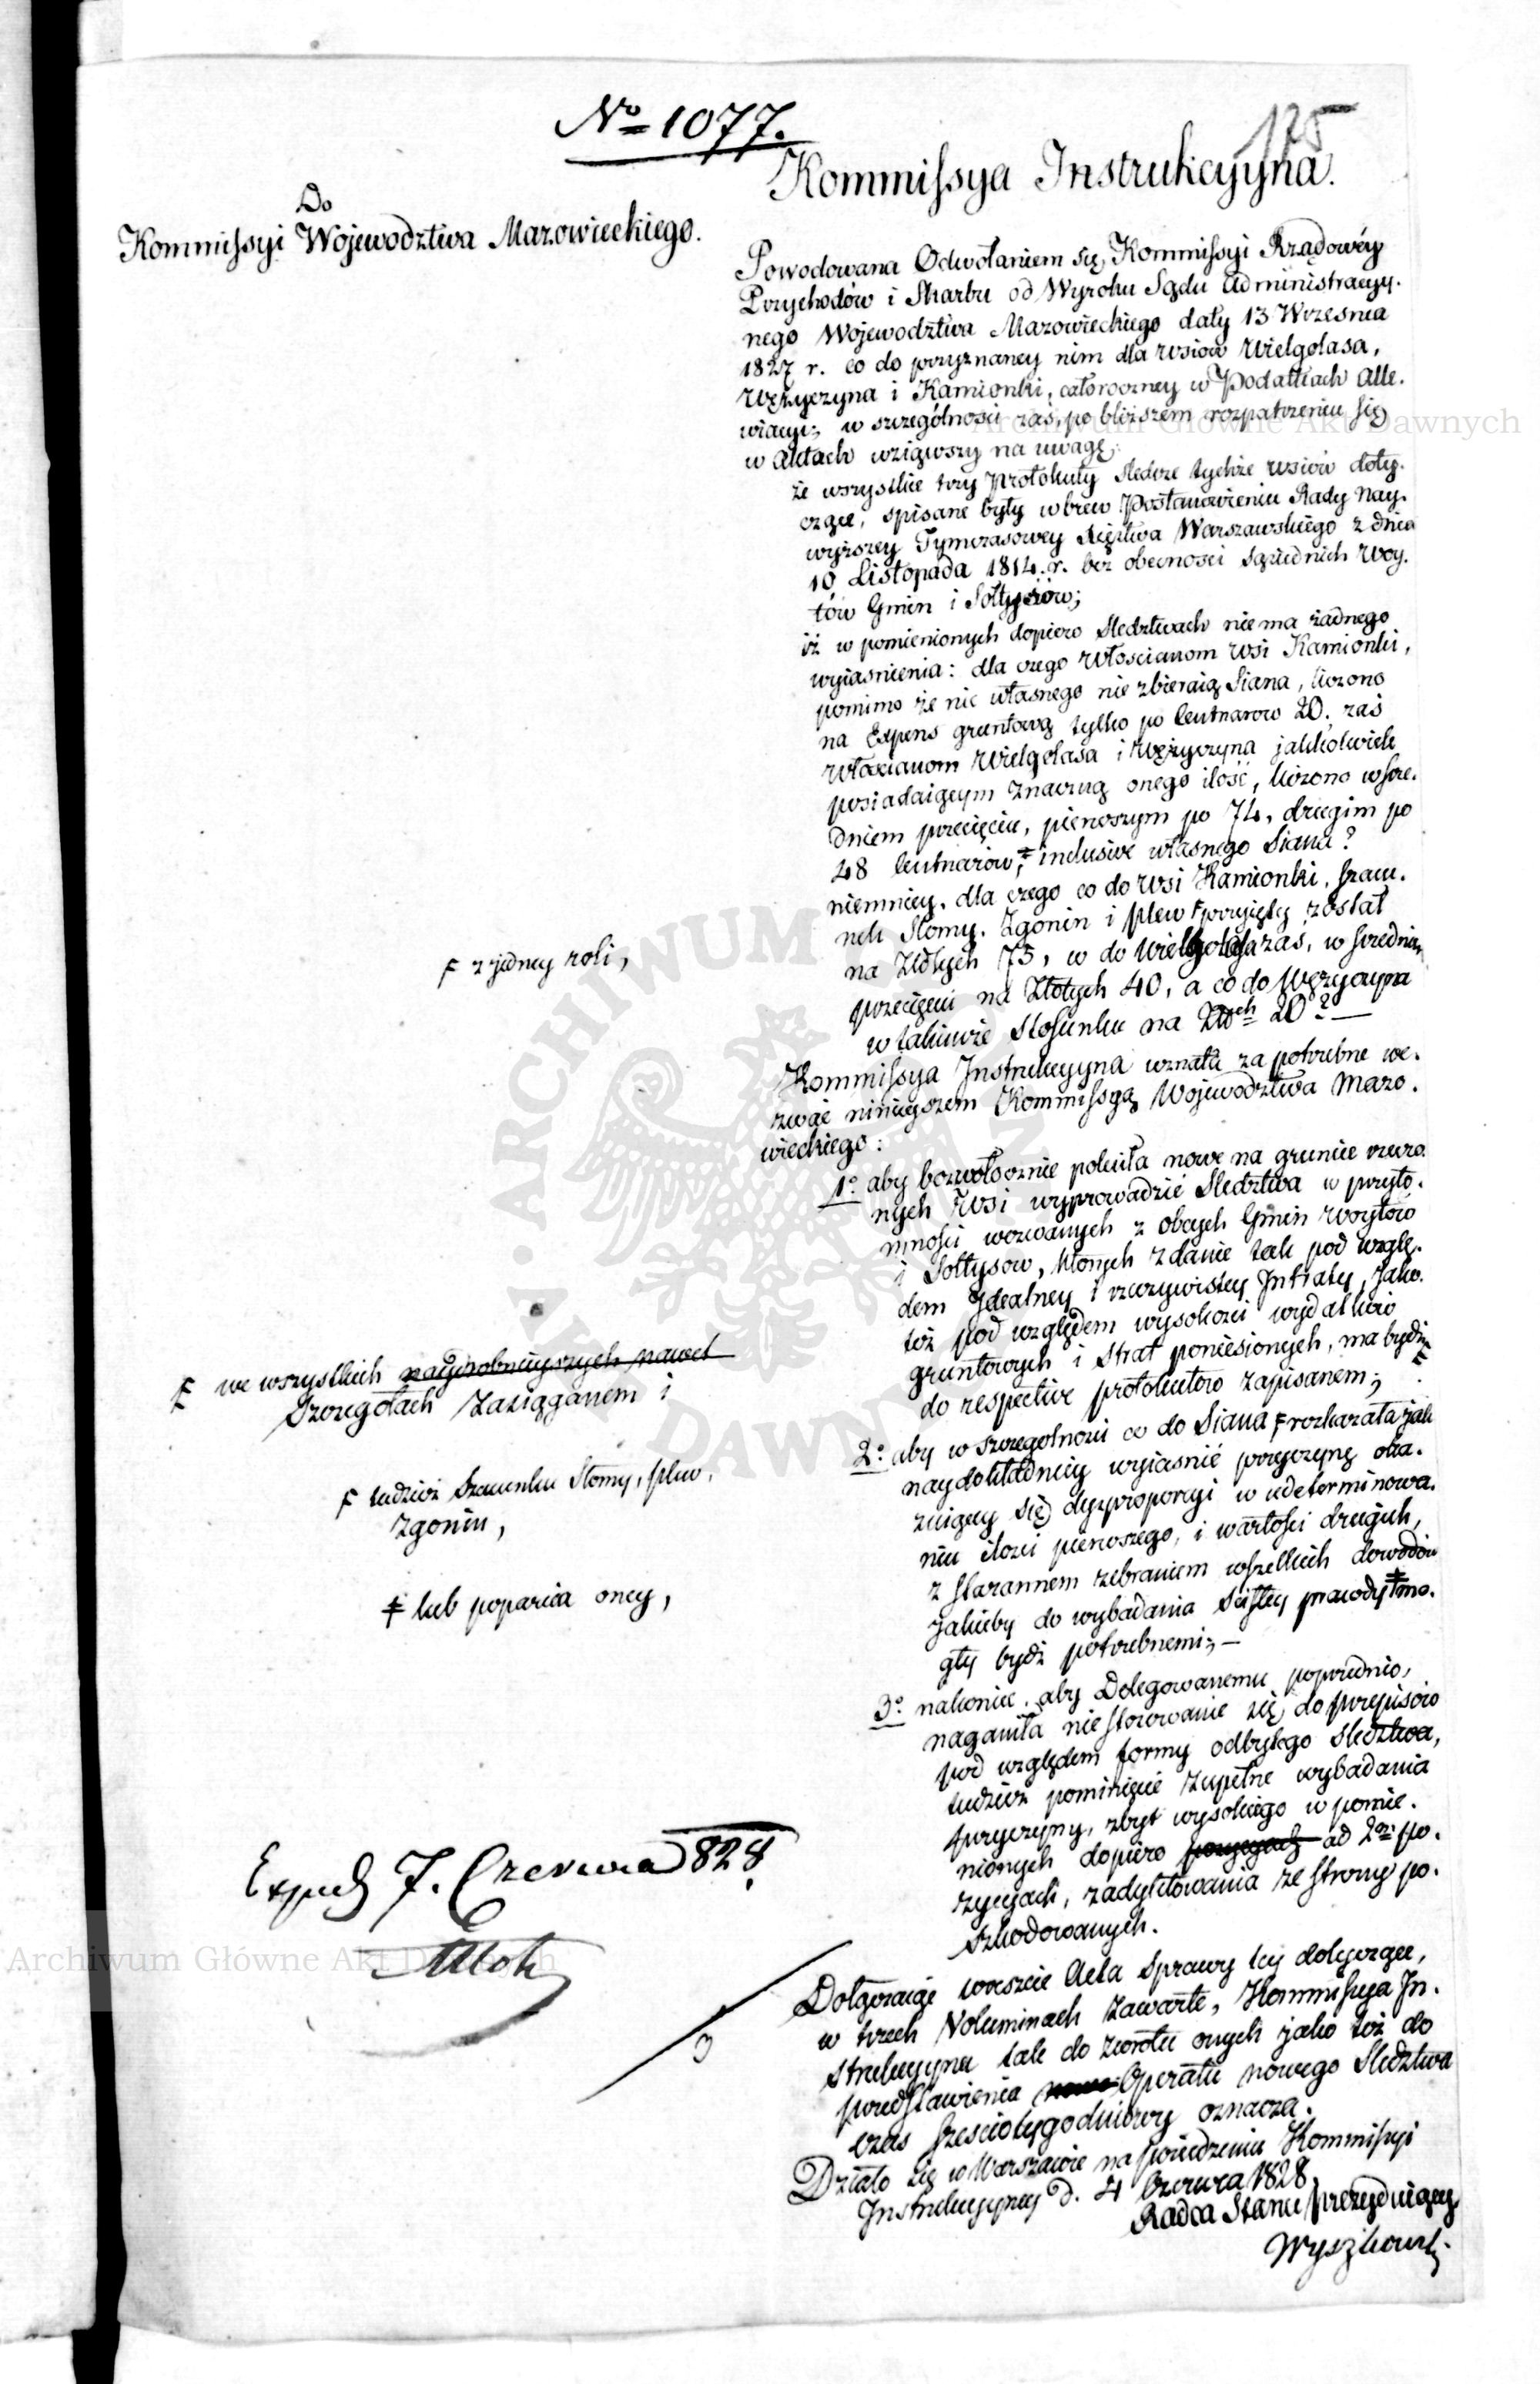 No 1077.
175
Kommissya Instrukcyyna.
Do
Kommissyi Województwa Mazowieckiego.
Powodowana Odwołaniem się Kommissyi Rządowéy
Przychodów i Skarbu od Wyroku Sądu Administracyy-
nego Województwa Mazowieckiego daty 13 Wrzesnia
1827 r. co do przyznaney nim dla wsiów Wielgolasa,
Wężyczyna i Kamionki, całoroczney w Podatkach Alle-
wiacyi; w szczególności zas, po bliższem rozpatrzeniu się
w Aktach wziąwszy na uwagę:
że wszystkie trzy Protokuły śledcze tychże wsiów doty-
czące, spisane były wbrew Postanowieniu Rady Nay-
wyższey Tymczasowey Xięztwa Warszawskiego z dnia
10 Listopada 1814. r. bez obecności sąsiednich Woy-
tów Gmin i Sołtysów;
iż w pomienionych dopiero Sledztwach nie ma żadnego
wyiasnienia: dla czego Włoscianom wsi Kamionki,
pomimo że nic własnego nie zbieraią Siana, liczono
na Expens gruntową tylko po Centnarow 20. zaś
Włoscianom Wielgolasa i Wężyczyna jakkolwiek
posiadaiącym znaczną onego ilość, liczono w śre-
dniem przecięciu, pierwszym po 74, drugim po
48 Centnarów, inclusive własnego Siana?
niemniey, dla czego co do wsi Kamionki, szacu-
nek Słomy, Zgonin i plew przyięty został
na Złotych 75, co do Wielgolasa zas, w średnim
przecięciu na Złotych 40, a co do Wężyczyna
w takimże Stosunku na Złtch 20?
Kommissya Instrukcyyna uznała za potrzebne we-
zwać ninieyszem Kommissyą Województwa Mazo-
wieckiego:
1o aby bezwłocznie poleciła nowe na gruncie rzeczo-
nych Wsi wyprowadzić Sledztwa w przyto-
mności wezwanych z obcych Gmin Woytów
i Sołtysow, których zdanie tak pod wzglę-
dem Idealney i rzeczywistey Intraty, jako-
też pod względem wysokosci wydatków
gruntowych i strat poniesionych, ma bydź
do respective protokułów zapisanem;
2o aby w szczegolności co do Siana, rozkazała jak
naydokładniey wyiasnić przyczynę oka-
zuiącey się dysproporcyi w udeterminowa-
niu ilosci pierwszego, i wartości drugich,
z starannem zebraniem wszelkich dowodów
jakieby do wybadania scisłey prawdy mo-
gły bydź potrzebnemi;
3o nakoniec, aby Delegowanemu poprzednio,
naganiła niestosowanie się do przepisów
pod względem formy odbytego sledztwa,
tudzież pominięcie zupełne wybadania
przyczyny, zbyt wysokiego w pomie-
nionych dopiero ad 2um po-
zycyach, zadyktowania ze strony po-
szkodowanych.
Dołączaiąc wreszcie Acta sprawy tey dotyczące,
w trzech Voluminach zawarte, Kommissya In-
strukcyyna tak do zwrotu onych jako też do
przedstawienia Operatu nowego Sledztwa
czas sześciotygodniowy oznacza.
Działo się w Warszawie na posiedzeniu Kommissyi
Instrukcyyney d. 4 Czerwca 1828.
Radca Stanu prezyduiący
Wyszkowski
z jedney roli,
we wszystkich naydrobnieyszych nawet
Szczegołach zasiągganem i
tudzież Szacunku Słomy, plew,
Zgonin,
lub poparcia oney,
Exped 7. Czerwca 828
Archiwum Główne Akt Dawnych
ARCHIWUM
AKT DAWNYCH
Archiwum Główne Akt Dawnych